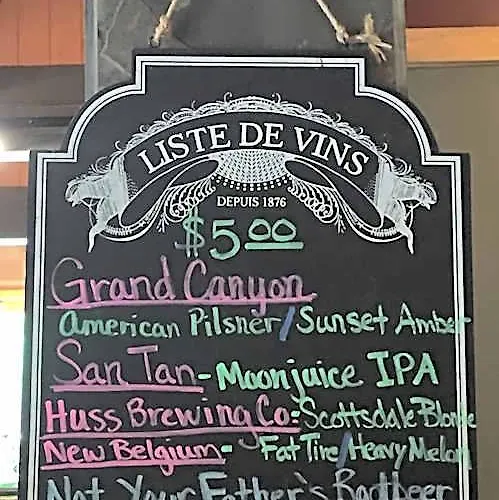 LISTE DE VINS
DEPUIS 1876
$5.00
Grand Canyon
American Pilsner/Sunset Amber
San Tan - Moonjuice IPA
Huss Brewing Co: Scottsdale Blonde
New Belgium - Fat Tire/Heavy Melon
Not Your Father's Rootbeer